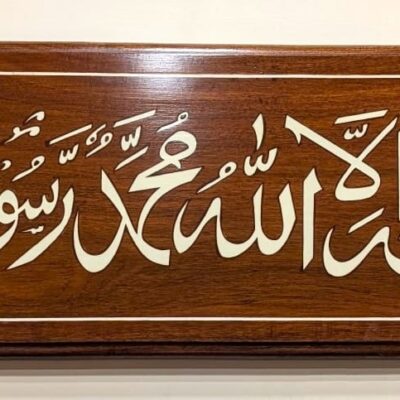 لَه اِلَّا اللّٰهُ مُحَمَّدٌ رَّسُو